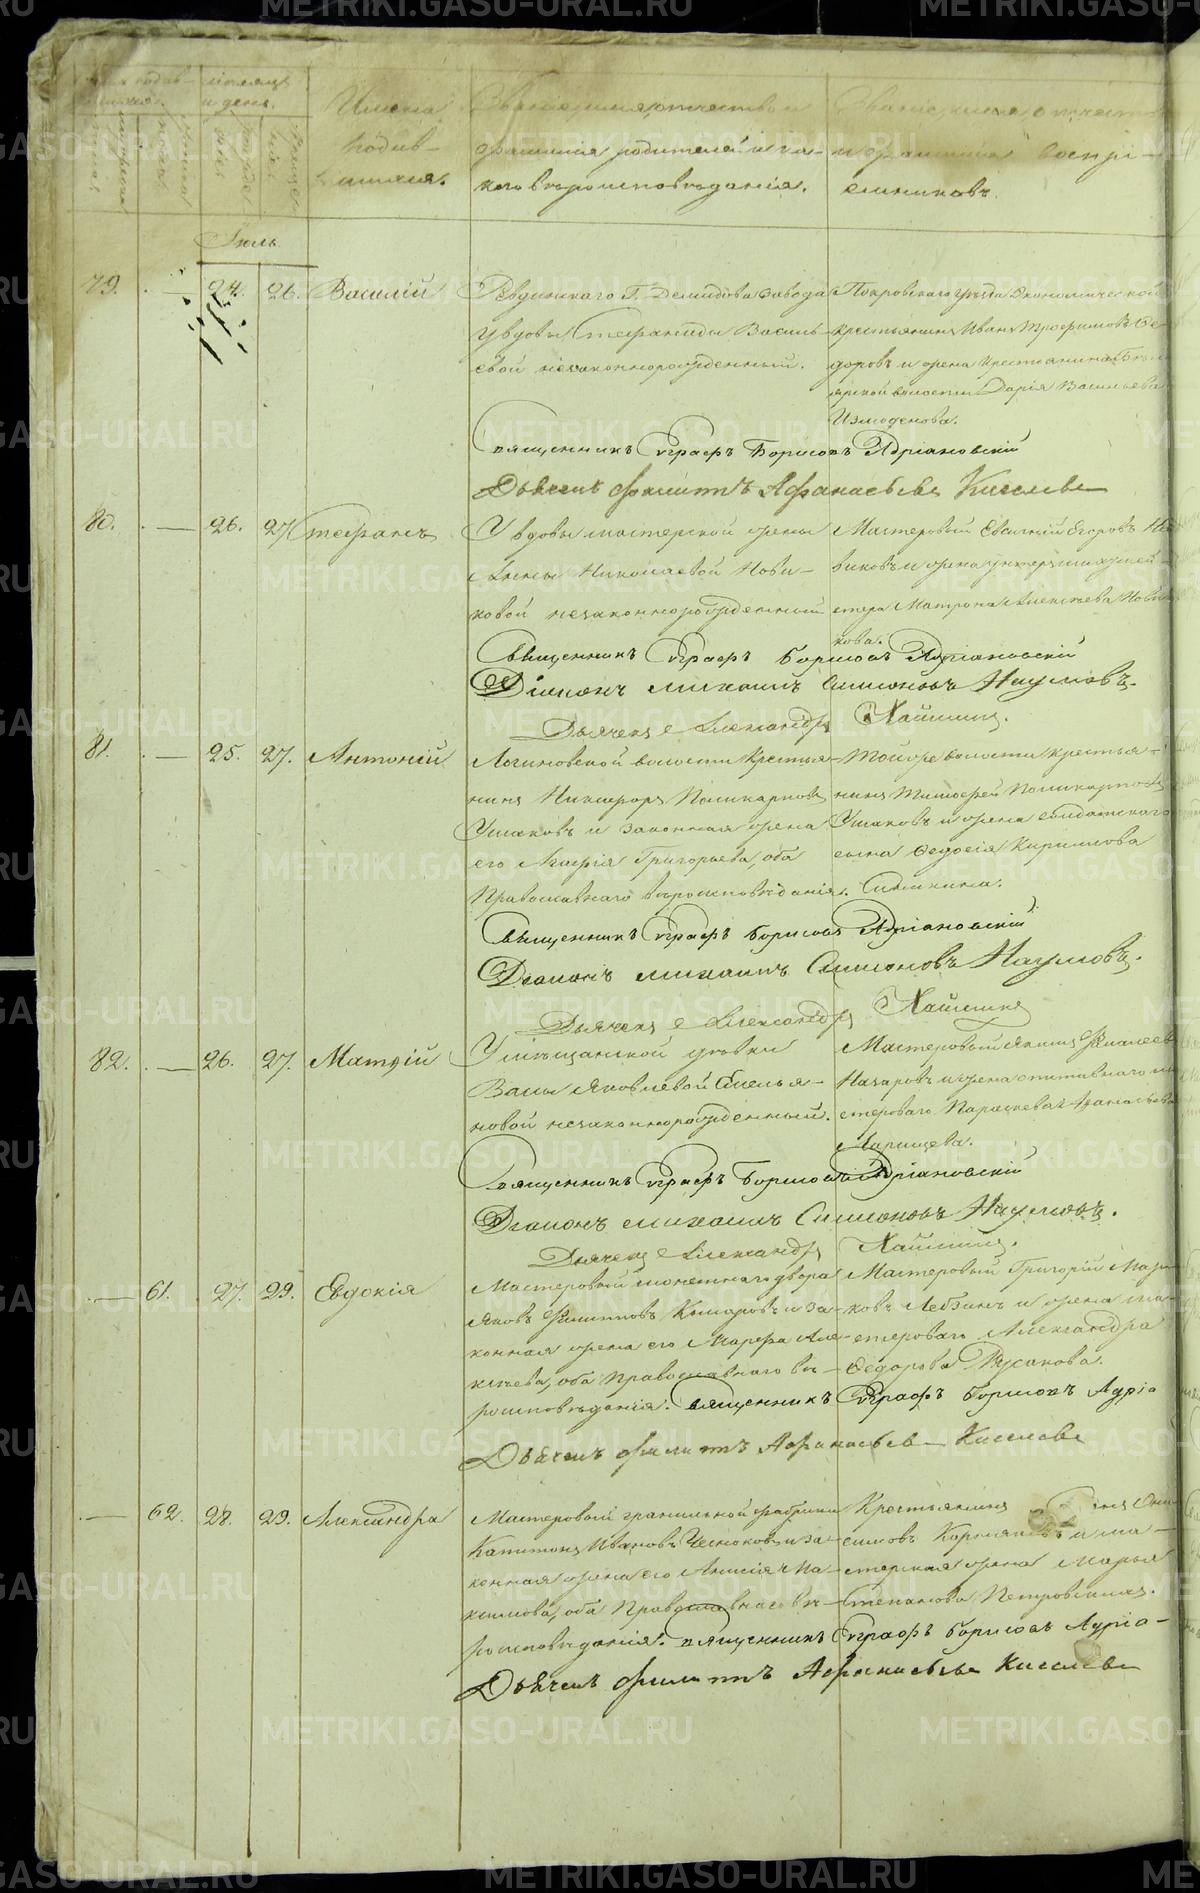 Имена
родив-
шихся.
Званіе, имя, отчество и
фамилія родителей и ка-
кого вѣроисповѣданія.
Званіе, имя, отчество
и фамилія воспрі-
емниковъ.
мѣсяцъ
и день.
Іюль.
79. 24. 26. Василій
Ревдинскаго Г. Демидова завода
у вдовы Стефаниды Василь-
евой незаконнорожденный.
крестьянинъ Иванъ Трофимовъ Ѳе-
доровъ и жена крестьянина
волости Дарія Васильева
Измоденова.
Священникъ Евграфъ Борисовъ Адріановскій
Дьячекъ Филиппъ Афанасьевъ Киселевъ
80. 26. 27. Стефанъ
У вдовы мастерской жены
Анны Николаевой Нови-
ковой незаконнорожденный
Мастеровый Евгеній Егоровъ Но-
виковъ и жена унтершихтмей-
стера Матрона Алексѣева Нови-
кова.
Священникъ Евграфъ Борисовъ Адріановскій
Діаконъ Михаилъ Симоновъ Наумовъ.
Дьячекъ Александръ Хайминъ.
81. 25. 27. Антоній
Логиновской волости крестья-
нинъ Никифоръ Поликарповъ
Ушаковъ и законная жена
его Агафія Григорьева, оба
Православнаго вѣроисповѣданія.
Той же волости крестья-
нинъ Тимофей Поликарповъ
Ушаковъ и жена солдатскаго
сына Ѳедосія Кирилова
Священникъ Евграфъ Борисовъ Адріановскій
Діаконъ Михаилъ Симоновъ Наумовъ.
Дьячекъ Александръ Хайминъ
82. 26. 27. Матѳій
У мѣщанской дѣвки
Вассы Яковлевой Емелья-
новой незаконнорожденный.
Мастеровый
Назаровъ и жена отставнаго ма-
стероваго Параскева Афанасьева
Ларищева.
Священникъ Евграфъ Борисовъ Адріановскій
Діаконъ Михаилъ Симоновъ Наумовъ.
Дьячекъ Александръ Хайминъ.
61. 27. 29. Евдокія
Мастеровый монетнаго двора
Яковъ Филипповъ Комаровъ и за-
конная жена его Марфа Але-
ксѣева, оба Православнаго вѣ-
роисповѣданія.
Мастеровый Григорій Мар-
ковъ Лебзинъ и жена ма-
стероваго Александра
Ѳедорова Русакова.
Священникъ Евграфъ Борисовъ Адріа
Дьячекъ Филиппъ Афанасьевъ Киселевъ
62. 28. 29. Александра
Мастеровый гранильной фабрики
Капитонъ Ивановъ Чесноковъ и за-
конная жена его Анисія Ма-
ксимова, оба Православнаго вѣ-
роисповѣданія.
Крестьянинъ
симовъ Кормляковъ и ма-
стерская жена Марья
Степанова Петровскихъ.
Священникъ Евграфъ Борисовъ Адріа-
Дьячекъ Филиппъ Афанасьевъ Киселевъ
METRIKI.GASO-URAL.RU